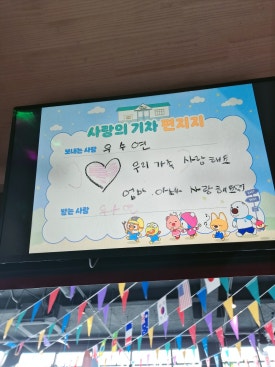 사랑의 기차 편지지
보내는 사람 우수연
우리 가족 사랑해요
엄마 아빠 사랑해요
받는 사람